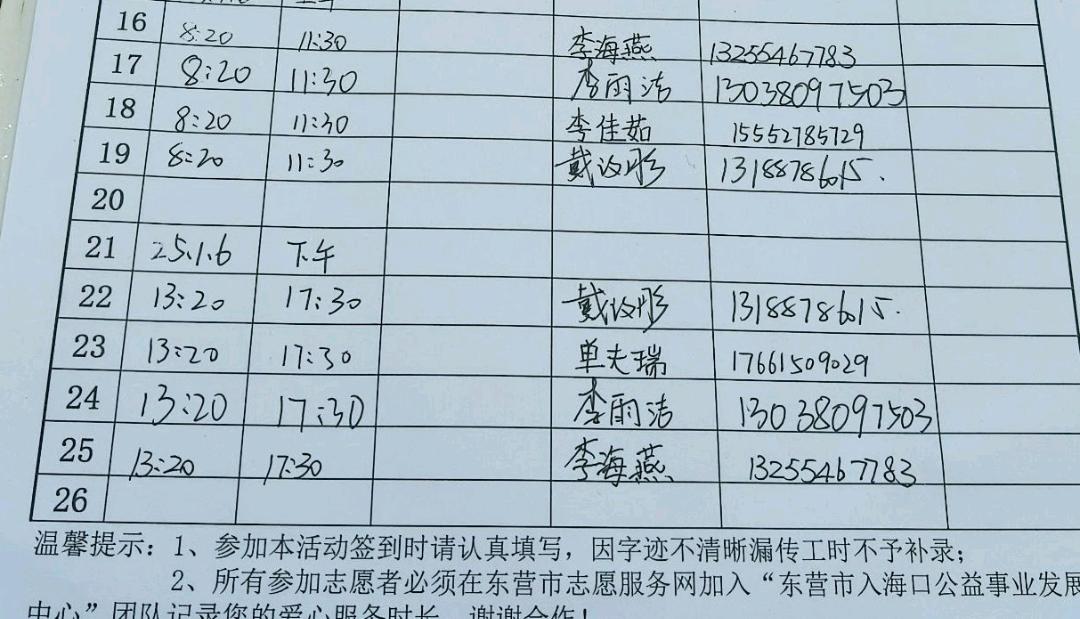 16 8:20 11:30 李海燕 13255467783
17 8:20 11:30 李雨洁 13038097503
18 8:20 11:30 李佳茹 15552785729
19 8:20 11:30 戴汝彤 13188786015.
20
21 25.1.6 下午
22 13:20 17:30 戴汝彤 13188786015.
23 13:20 17:30 单夫瑞 17661509029
24 13:20 17:30 李雨洁 13038097503
25 13:20 17:30 李海燕 13255467783
26
温馨提示：1、参加本活动签到时请认真填写，因字迹不清晰漏传工时不予补录；
2、所有参加志愿者必须在东营市志愿服务网加入“东营市入海口公益事业发展
中心”团队记录您的爱心服务时长，谢谢合作！